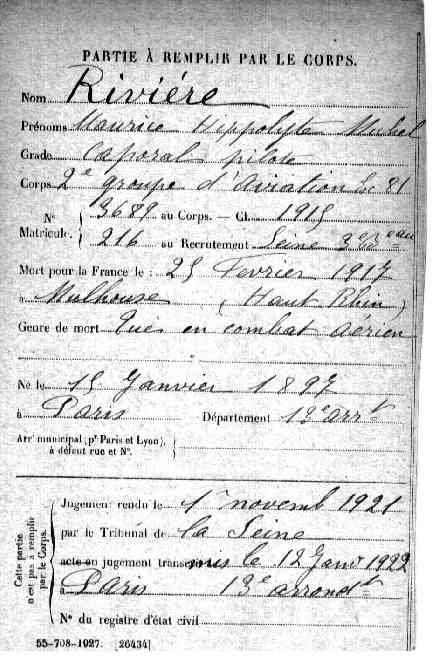 PARTIE À REMPLIR PAR LE CORPS.
Nom Rivière
Prénoms Maurice Hippolyte Michel
Grade Caporal pilote
Corps 2e groupe d'Aviation Esc 81
N° Matricule. { 3689 au Corps. — Cl. 1915
216 au Recrutement Seine 3e Beau
Mort pour la France le : 25 Fevrier 1917
à Mulhouse (Haut Rhin)
Genre de mort Tué en combat aérien
Né le 15 Janvier 1897
à Paris Département 13e arrt
Arrt municipal (pr Paris et Lyon),
à défaut rue et N°.
Cette partie n'est pas à remplir par le Corps.
Jugement rendu le 1er novemb 1921
par le Tribunal de la Seine
acte ou jugement transcrit le 12 Janv 1922
à Paris 13e arrondt
N° du registre d'état civil
55-708-1927. [26434]